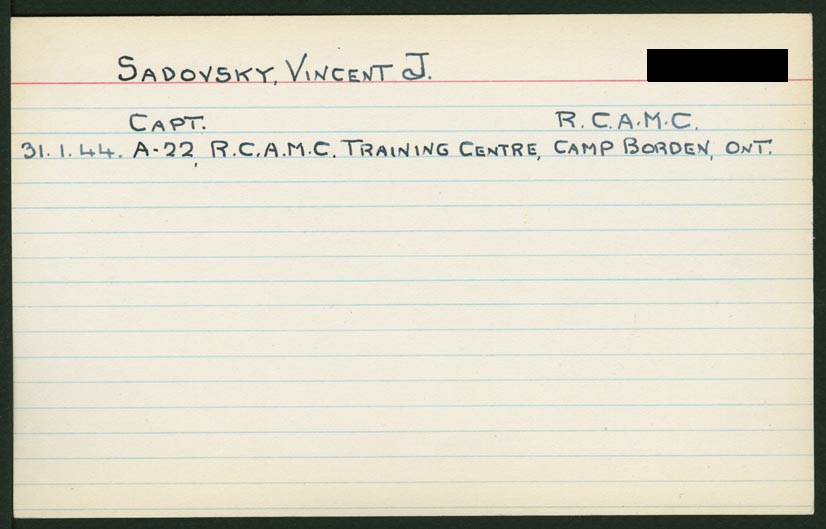 SADOVSKY, VINCENT J.
CAPT. R.C.A.M.C.
31.1.44. A-22, R.C.A.M.C. TRAINING CENTRE, CAMP BORDEN, ONT.